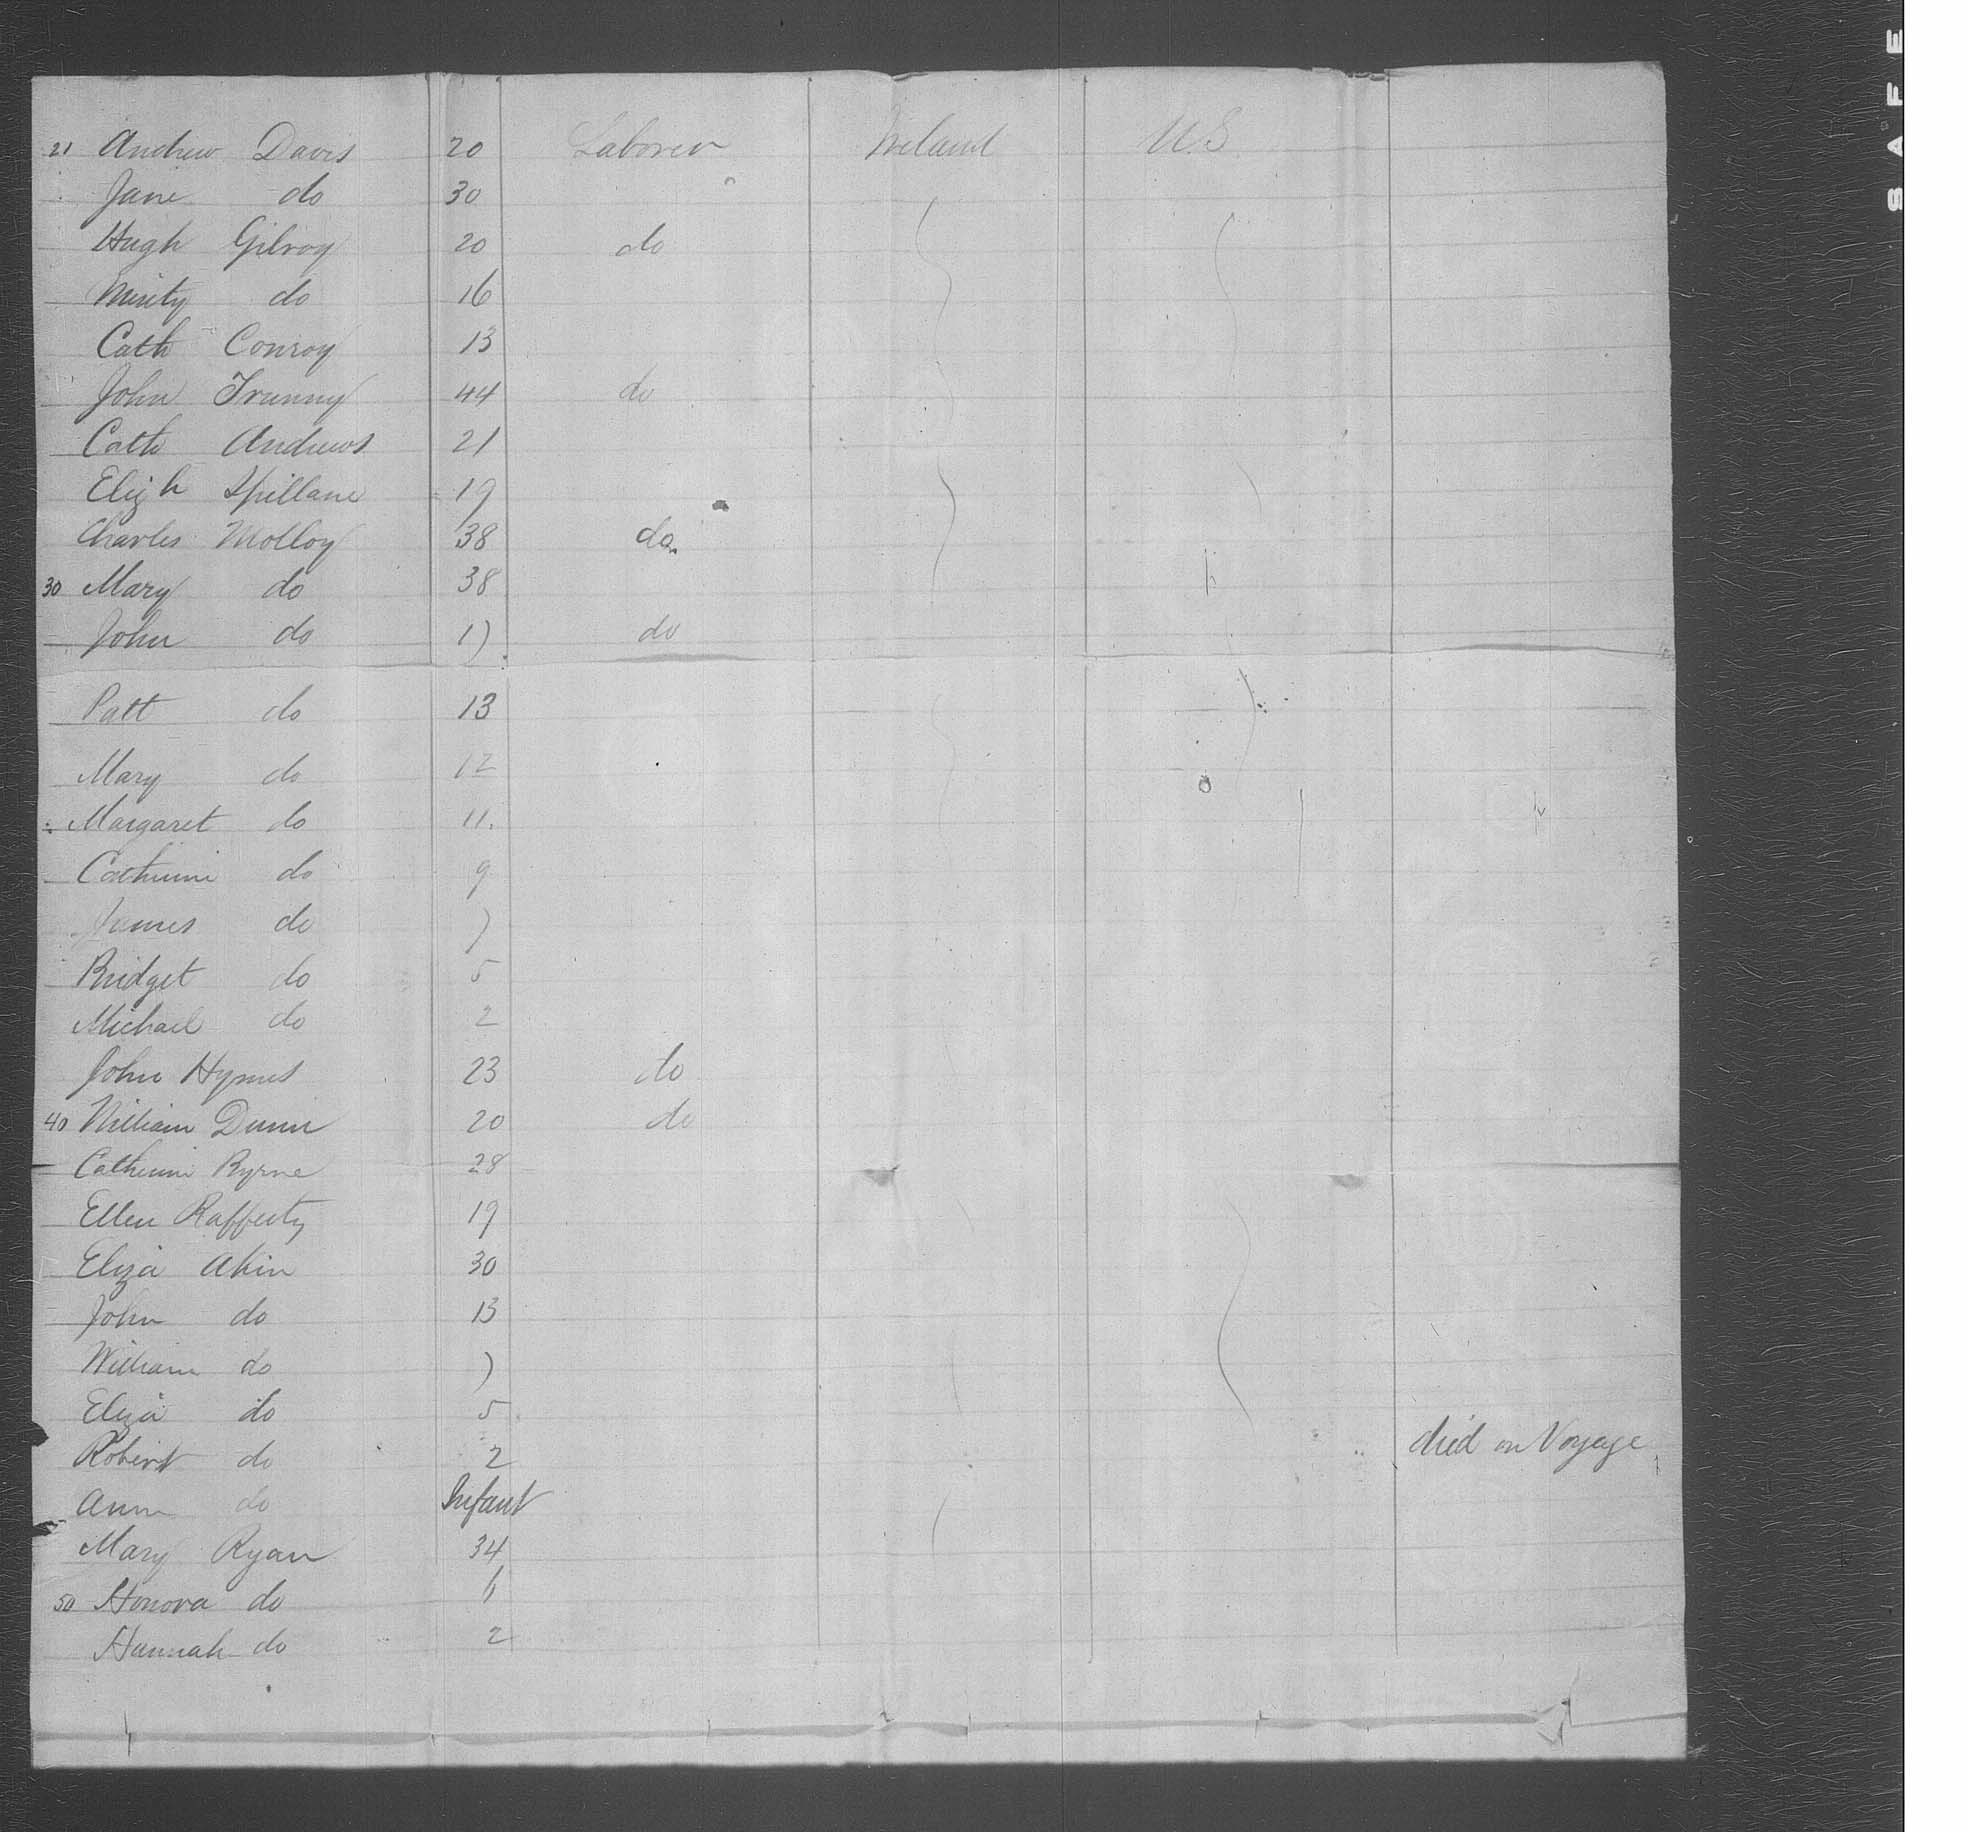 SAFE
21 Andrew Davis 20 Laborer Ireland U.S.
Jane do 30
Hugh Gilroy 20 do
do 16
Cath Conroy 13
John 44 do
Cath Andrews 21
Elizh Spillane 19
Charles Molloy 38 do
30 Mary do 38
John do 17 do
Patt do 13
Mary do 12
Margaret do 11.
Catherine do 9
James do 7
Bridget do 5
Michael do 2
John Hynes 23 do
40 William Dunn 20 do
Catherine Byrne 28
Ellen Rafferty 19
Eliza Akin 30
John do 13
William do 7
Eliza do 5
Robert do 2 died on Voyage
Ann do Infant
Mary Ryan 34
50 Honora do 6
Hannah do 2